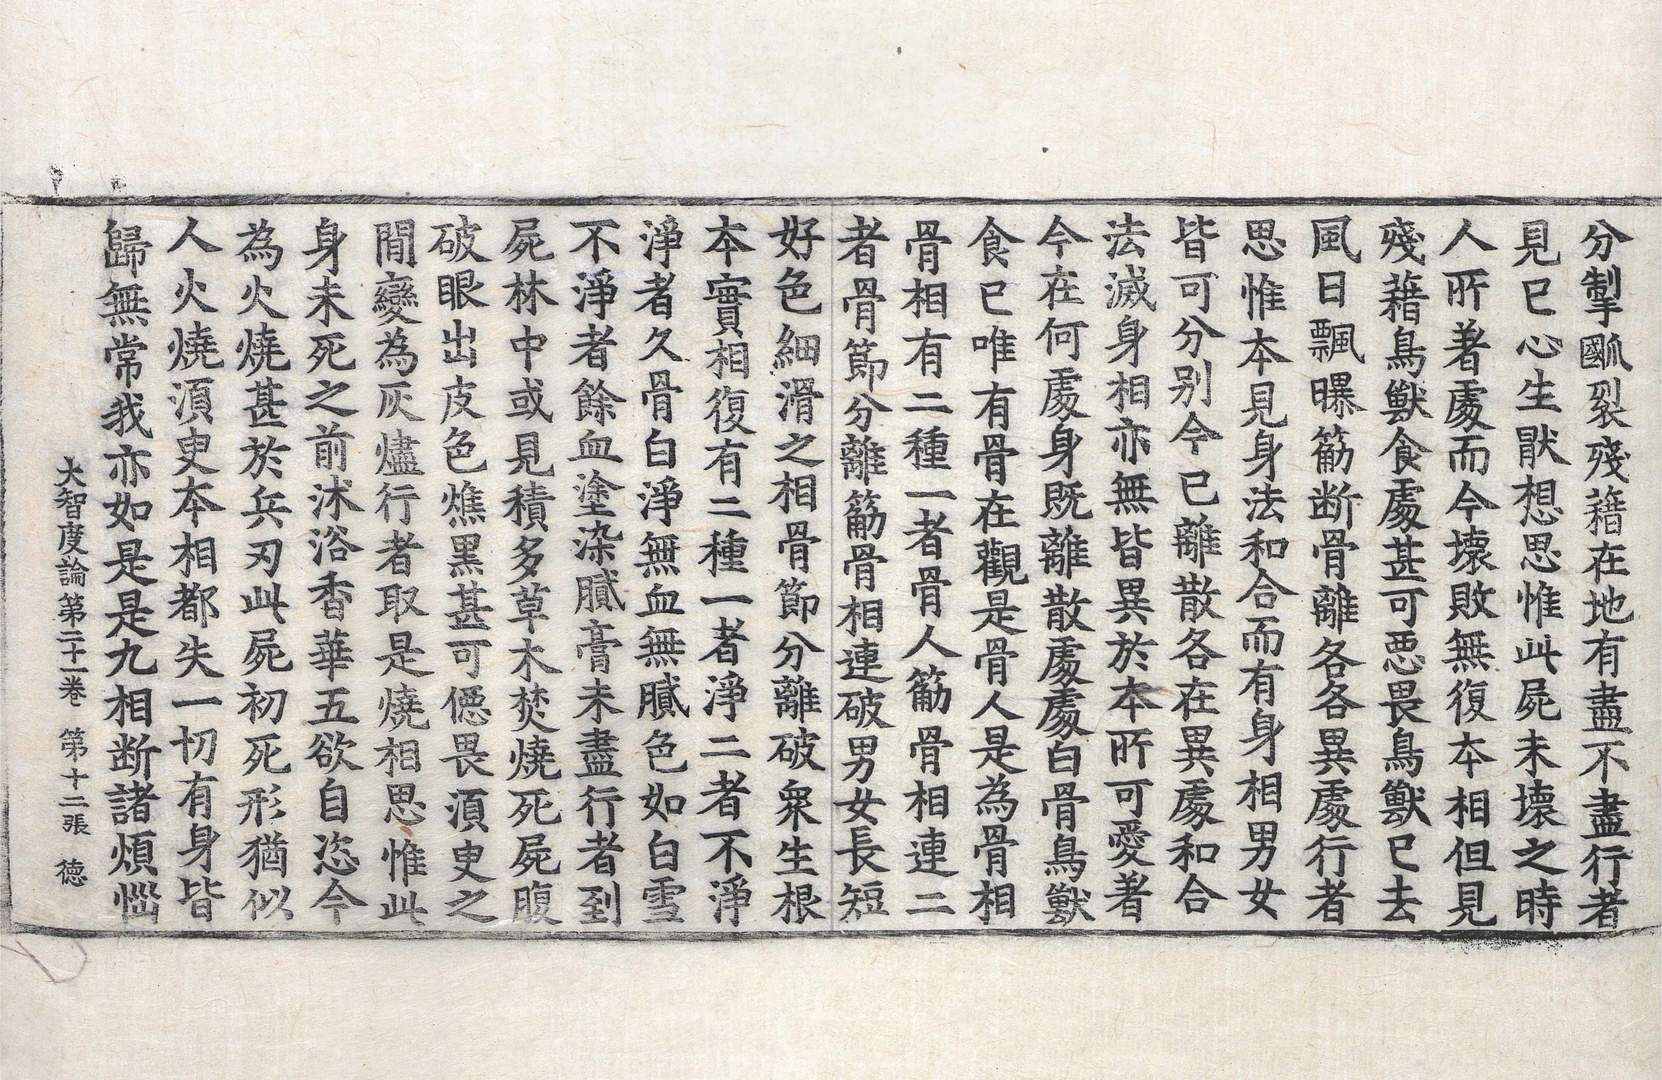 分掣𤔩裂殘藉在地有盡不盡行者
見已心生猒想思惟此屍未壞之時
人所著處而今壞敗無復本相但見
殘藉鳥獸食處甚可惡畏鳥獸已去
風日飄曝筋断骨離各各異處行者
思惟本見身法和合而有身相男女
皆可分別今已離散各在異處和合
法滅身相亦無皆異於本所可愛著
今在何處身既離散處處白骨鳥獸
食已唯有骨在觀是骨人是為骨相
骨相有二種一者骨人筋骨相連二
者骨節分離筋骨相連破男女長短
好色細滑之相骨節分離破衆生根
本實相復有二種一者淨二者不淨
淨者久骨白淨無血無膩色如白雪
不淨者餘血塗染膩膏未盡行者到
屍林中或見積多草木焚燒死屍腹
破眼出皮色燋黑甚可𢠵畏湏臾之
間變為灰燼行者取是燒相思惟此
身未死之前沐浴香華五欲自恣今
為火燒甚於兵刃此屍初死形猶似
人火燒湏臾本相都失一切有身皆
歸無常我亦如是是九相断諸煩惱
大智度論第二十一卷 第十二張 德